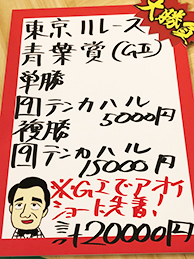 大勝負
東京11レース
青葉賞(GⅡ)
単勝
9テンカハル
5000円
複勝
9テンカハル
15000円
※GⅠでアオイ
ショート先着!
計20000円